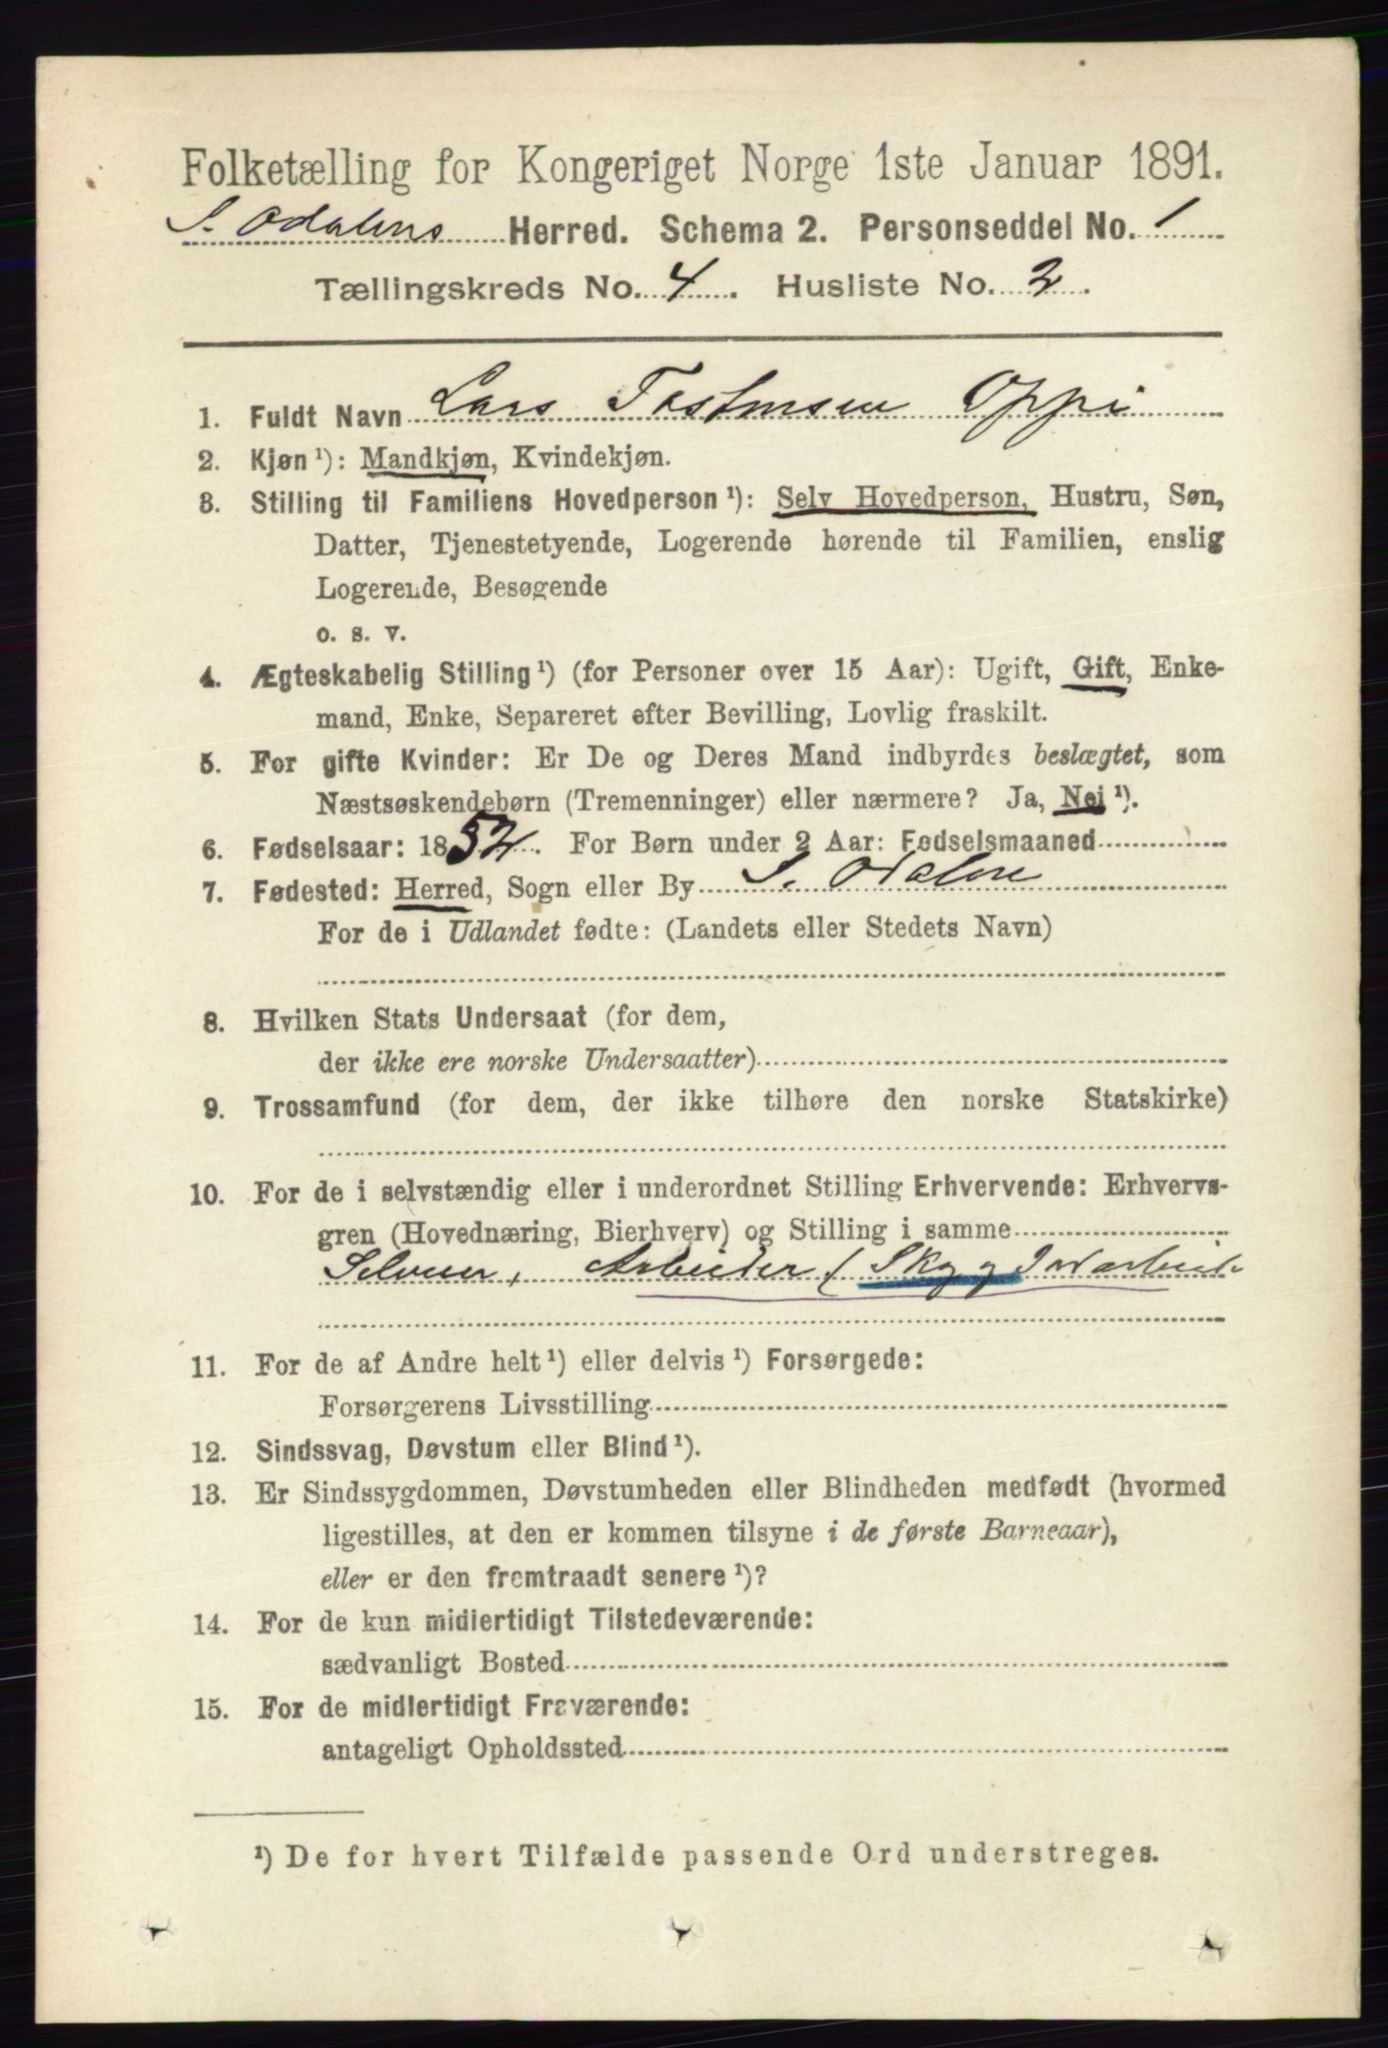 Folketælling for Kongeriget Norge 1ste Januar 1891.
S. Odalens Herred. Schema 2. Personseddel No. 1
Tællingskreds No. 4. Husliste No. 2.
1. Fuldt Navn Lars Oppi
2. Kjøn ¹): Mandkjøn, Kvindekjøn.
3. Stilling til Familiens Hovedperson ¹): Selv Hovedperson, Hustru, Søn,
Datter, Tjenestetyende, Logerende hørende til Familien, enslig
Logerende, Besøgende
o. s. v.
4. Ægteskabelig Stilling ¹) (for Personer over 15 Aar): Ugift, Gift, Enke-
mand, Enke, Separeret efter Bevilling, Lovlig fraskilt.
5. For gifte Kvinder: Er De og Deres Mand indbyrdes beslægtet, som
Næstsøskendebørn (Tremenninger) eller nærmere? Ja, Nei ¹).
6. Fødselsaar: 1852. For Børn under 2 Aar: Fødselsmaaned
7. Fødested: Herred, Sogn eller By S. Odalen
For de i Udlandet fødte: (Landets eller Stedets Navn)
8. Hvilken Stats Undersaat (for dem,
der ikke ere norske Undersaatter)
9. Trossamfund (for dem, der ikke tilhøre den norske Statskirke)
10. For de i selvstændig eller i underordnet Stilling Erhvervende: Erhvervs-
gren (Hovednæring, Bierhverv) og Stilling i samme
Selveier, Arbeider (Skg og Jordarbeid
11. For de af Andre helt ¹) eller delvis ¹) Forsørgede:
Forsørgerens Livsstilling
12. Sindssvag, Døvstum eller Blind ¹).
13. Er Sindssygdommen, Døvstumheden eller Blindheden medfødt (hvormed
ligestilles, at den er kommen tilsyne i de første Barneaar),
eller er den fremtraadt senere ¹)?
14. For de kun midlertidigt Tilstedeværende:
sædvanligt Bosted
15. For de midlertidigt Fraværende:
antageligt Opholdssted
¹) De for hvert Tilfælde passende Ord understreges.